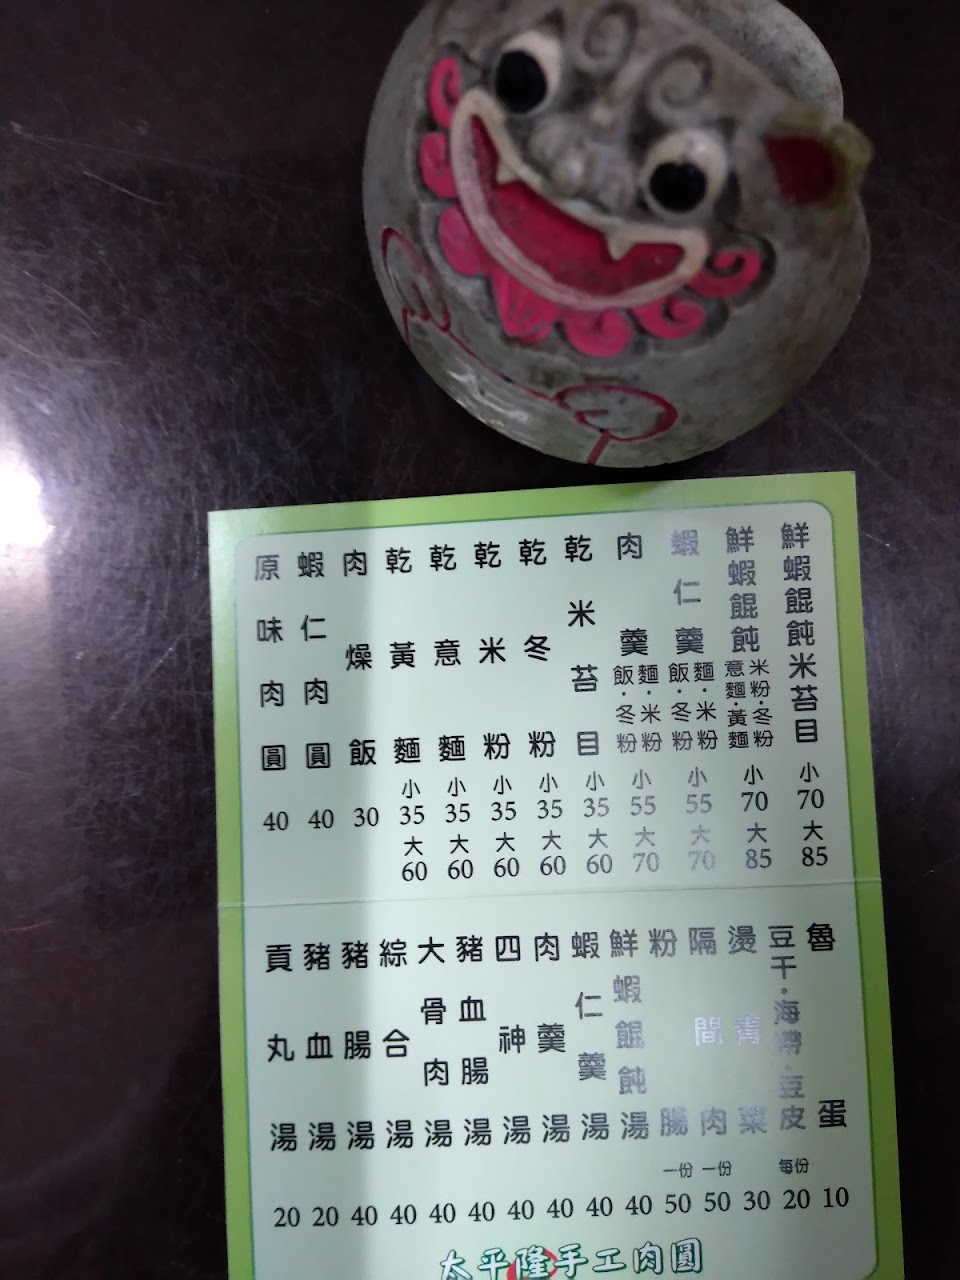 原味肉圓 40
蝦仁肉圓 40
肉燥飯 30
乾黃麵 小35 大60
乾意麵 小35 大60
乾米粉 小35 大60
乾冬粉 小35 大60
乾米苔目 小35 大60
肉羹 飯·冬粉 麵·米粉 小55 大70
蝦仁羹 飯·冬粉 麵·米粉 小55 大70
鮮蝦餛飩 意麵·黃麵 米粉·冬粉 小70 大85
鮮蝦餛飩米苔目 小70 大85
貢丸湯 20
豬血湯 20
豬腸湯 40
綜合湯 40
大骨肉湯 40
豬血腸湯 40
四神湯 40
肉羹湯 40
蝦仁羹湯 40
鮮蝦餛飩湯 40
粉腸 一份 50
隔間肉 一份 50
燙青菜 30
豆干·海帶·豆皮 每份 20
魯蛋 10
太平隆手工肉圓